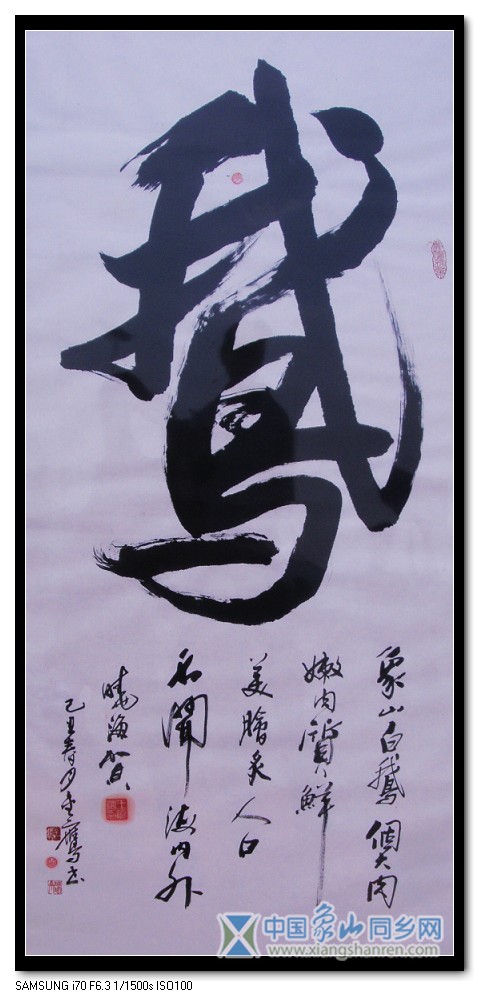 鵝
象山白鵝個大肉
嫩肉質鮮
美膾炙人口
名聞海内外
曉海賀
己丑春月書
中国象山同乡网
www.xiangshanren.com
SAMSUNG i70 F6.3 1/1500s ISO100